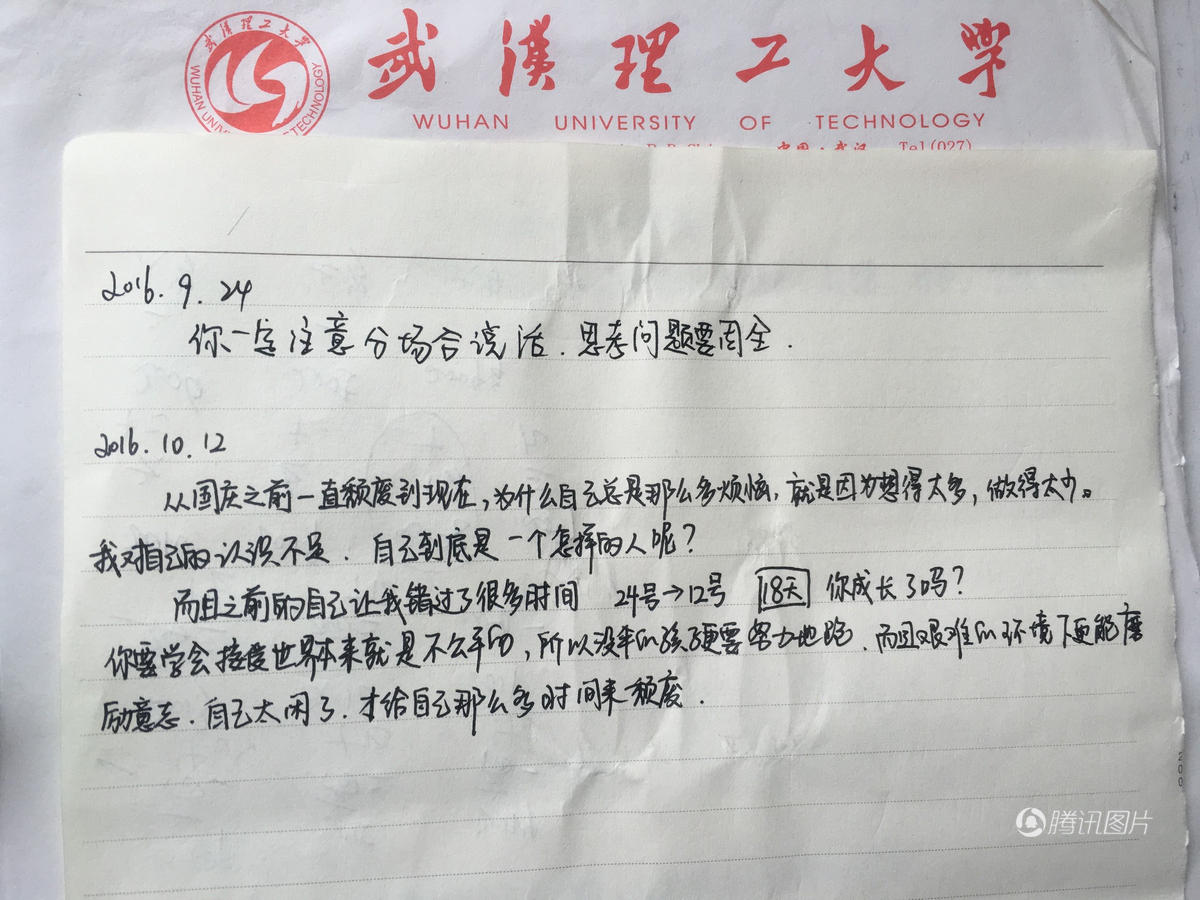 武汉理工大学
武漢理工大学
WUHAN UNIVERSITY OF TECHNOLOGY
中国·武汉 Tel(027)
2016.9.24
你一定注意分场合说话.思考问题要周全.
2016.10.12
从国庆之前一直额废到现在,为什么自己总是那么多烦恼,就是因为想得太多,做得太少。
我对自己的认识不足.自己到底是一个怎样的人呢?
而且之前的自己让我错过了很多时间 24号→12号 18天 你成长了吗?
你要学会接受世界本来就是不公平的,所以没伞的孩子更要努力地跑.而且艰难的环境下更能磨
励意志.自己太闲了.才给自己那么多时间来额废.
200
腾讯图片